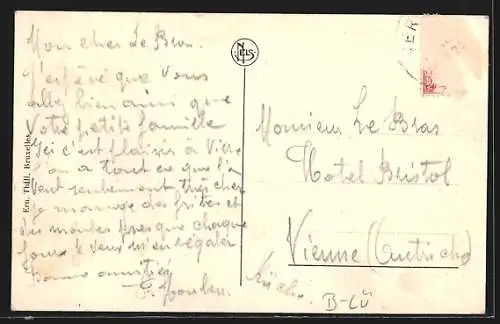 Mon cher Le Bras.
J'espère que vous
allez bien ainsi que
Votre petite famille
Ici c'est plaisir à vivre
on a tout ce que l'on
veut seulement très cher
Je mange des frites et
des moules presque chaque
jour je veux m'en régaler
Bonne amitiés
Ern. Thill, Bruxelles
NELS
Monsieur Le Bras
Hotel Bristol
Vienne (Autriche)
B-Lü